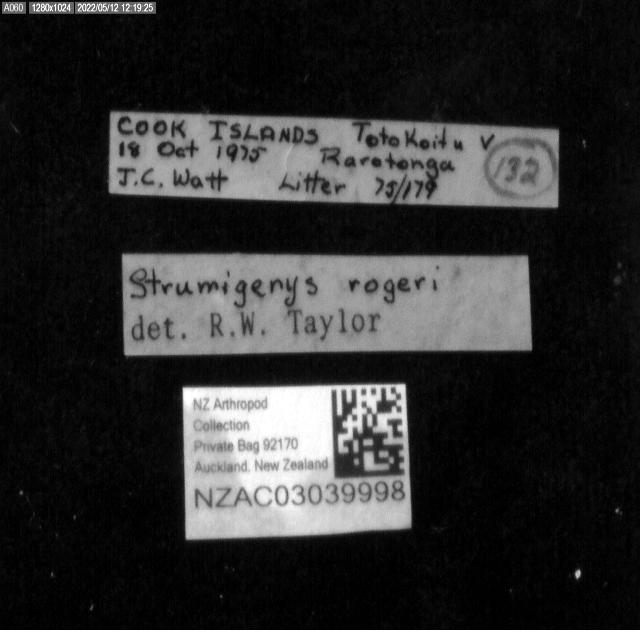 A060 1280x1024 2022/05/12 12:19:25
COOK ISLANDS Totokoitu V
18 Oct 1975 Rarotonga
J.C. Watt Litter 75/179
132
Strumigenys rogeri
det. R.W. Taylor
NZ Arthropod
Collection
Private Bag 92170
Auckland, New Zealand
NZAC03039998